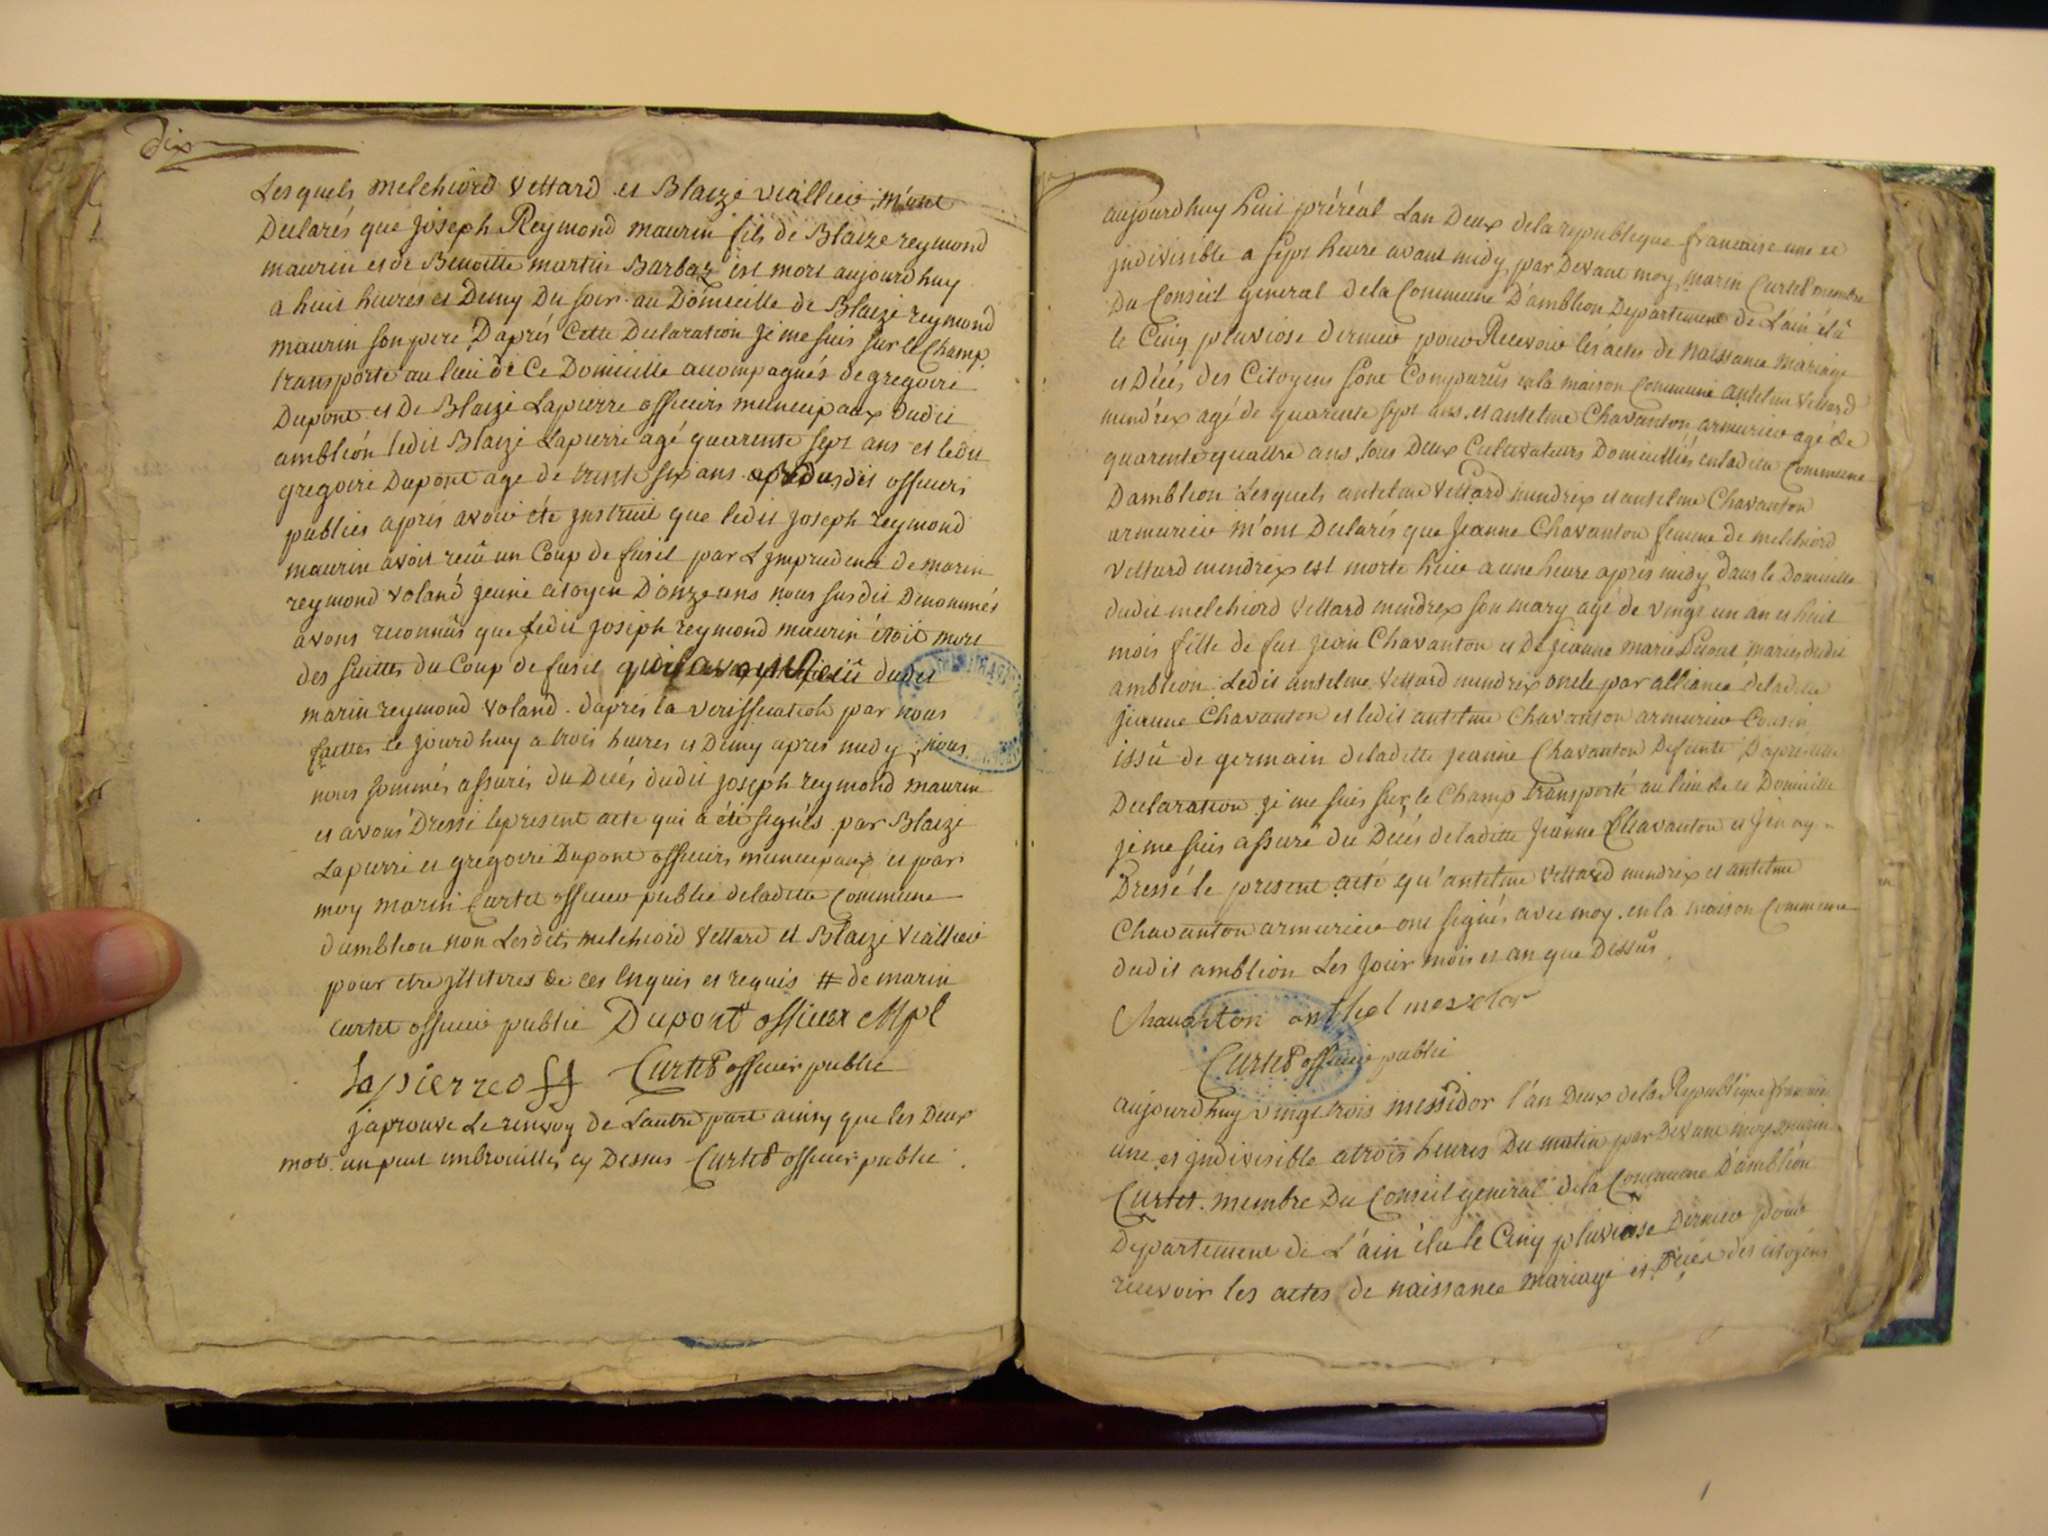 dix
Lesquels melchiord Vettard et Blaize viallier m'ont
Declarés que joseph Reymond maurin fils de Blaize reymond
maurin et de Benoitte martin Barbaz est mort aujourdhuy
a huit heures et Demy Du soir au Domicille de Blaize reymond
maurin son pere D'aprés Cette Declaration je me suis sur le Champ
transporté au lieu de Ce Domicille accompagnés de gregoire
Dupont et De Blaize Lapierre officiers municipaux dudit
ambléon ledit Blaize Lapierre agé quarente sept ans et ledit
gregoire Dupont age de trente six ans susdit officiers
publics aprés avoir été instruit que ledit joseph reymond
maurin avoit recû un Coup de fusil par L'imprudence de marin
reymond voland jeune citoyen D'onze ans nous susdit Denommés
avons reconnûs que ledit joseph reymond maurin étoit mort
des suittes du Coup de fusil qu'il avoit recû dudit
marin reymond voland . daprés la veriffication par nous
faittes ce jourdhuy a trois heures et Demy apres midy , nous
nous sommés assurés du Decés dudit joseph reymond maurin
et avons Dressé le present acte qui a été signés par Blaize
Lapierre et gregoire Dupont officiers municipaux et par
moy marin Curtet officier public de laditte Commune
d'ambleon non Lesdits melchiord Vettard et Blaize Viallier
pour etre illiteres de ces Enquis et requis # de marin
curtet officier public Dupont officier Mpl
lapierre off Curtet officier public
japrouve Le renvoy de Lautre part ainsy que les Deux
mots un peut embrouilles cy Dessus Curtet officier public .
aujourdhuy huit préréal Lan Deux de la republique francaise une et
jndivisible a sept heure avant midy par Devant moy marin Curtet membre
Du Conseil general de la Commune D'ambléon Departement de L'ain élû
le Cinq pluviose dernier pour Recevoir les actes de Naissance Mariage
et Décés des Citoyens sont Comparûs en la maison Commune antelme Vettard
mendrex agé de quarente sept ans et antelme Chavanton armurier agé de
quarente quattre ans tous Deux Cultivateurs Domicilliés en ladite Commune
D'ambléon Lesquels antelme Vettard mendrix et antelme Chavanton
armurier m'ont Declarés que Jeanne Chavanton femme de melchiord
Vettard mendrix est morte hier a une heure aprés midy dans le Domicille
dudit melchiord Vettard mendrex son mary agé de vingt un an et huit
mois fille de fut jean Chavanton et De jeanne marie mariés dudit
ambléon . Ledit antelme Vettard mendrix oncle par alliance de ladite
jeanne Chavanton et ledit antelme Chavanton armurier Cousin
issû de germain de laditte jeanne Chavanton Defunte , D'aprés cette
Declaration je me suis sur le Champ Transporté au lieu de ce Domicille
je me suis assuré du Decés de laditte Jeanne Chavanton et j'en ay
Dressé le present acte qu'antelme Vettard mendrix et antelme
Chavanton armurier ont signés avec moy en la maison Commune
dudit ambléon Les jour mois et an que Dessûs .
Chavanton
Curtet officier public
aujourdhuy vingt trois messidor l'an Deux de la Republique francaise
une et jndivisible a trois heures Du matin par Devant moy marin
Curtet . membre Du Conseil general de la Commune D'ambléon
Departement de L'ain élu le Cinq pluviose Dernier pour
recevoir les actes de naissance mariage et Décés des citoyens